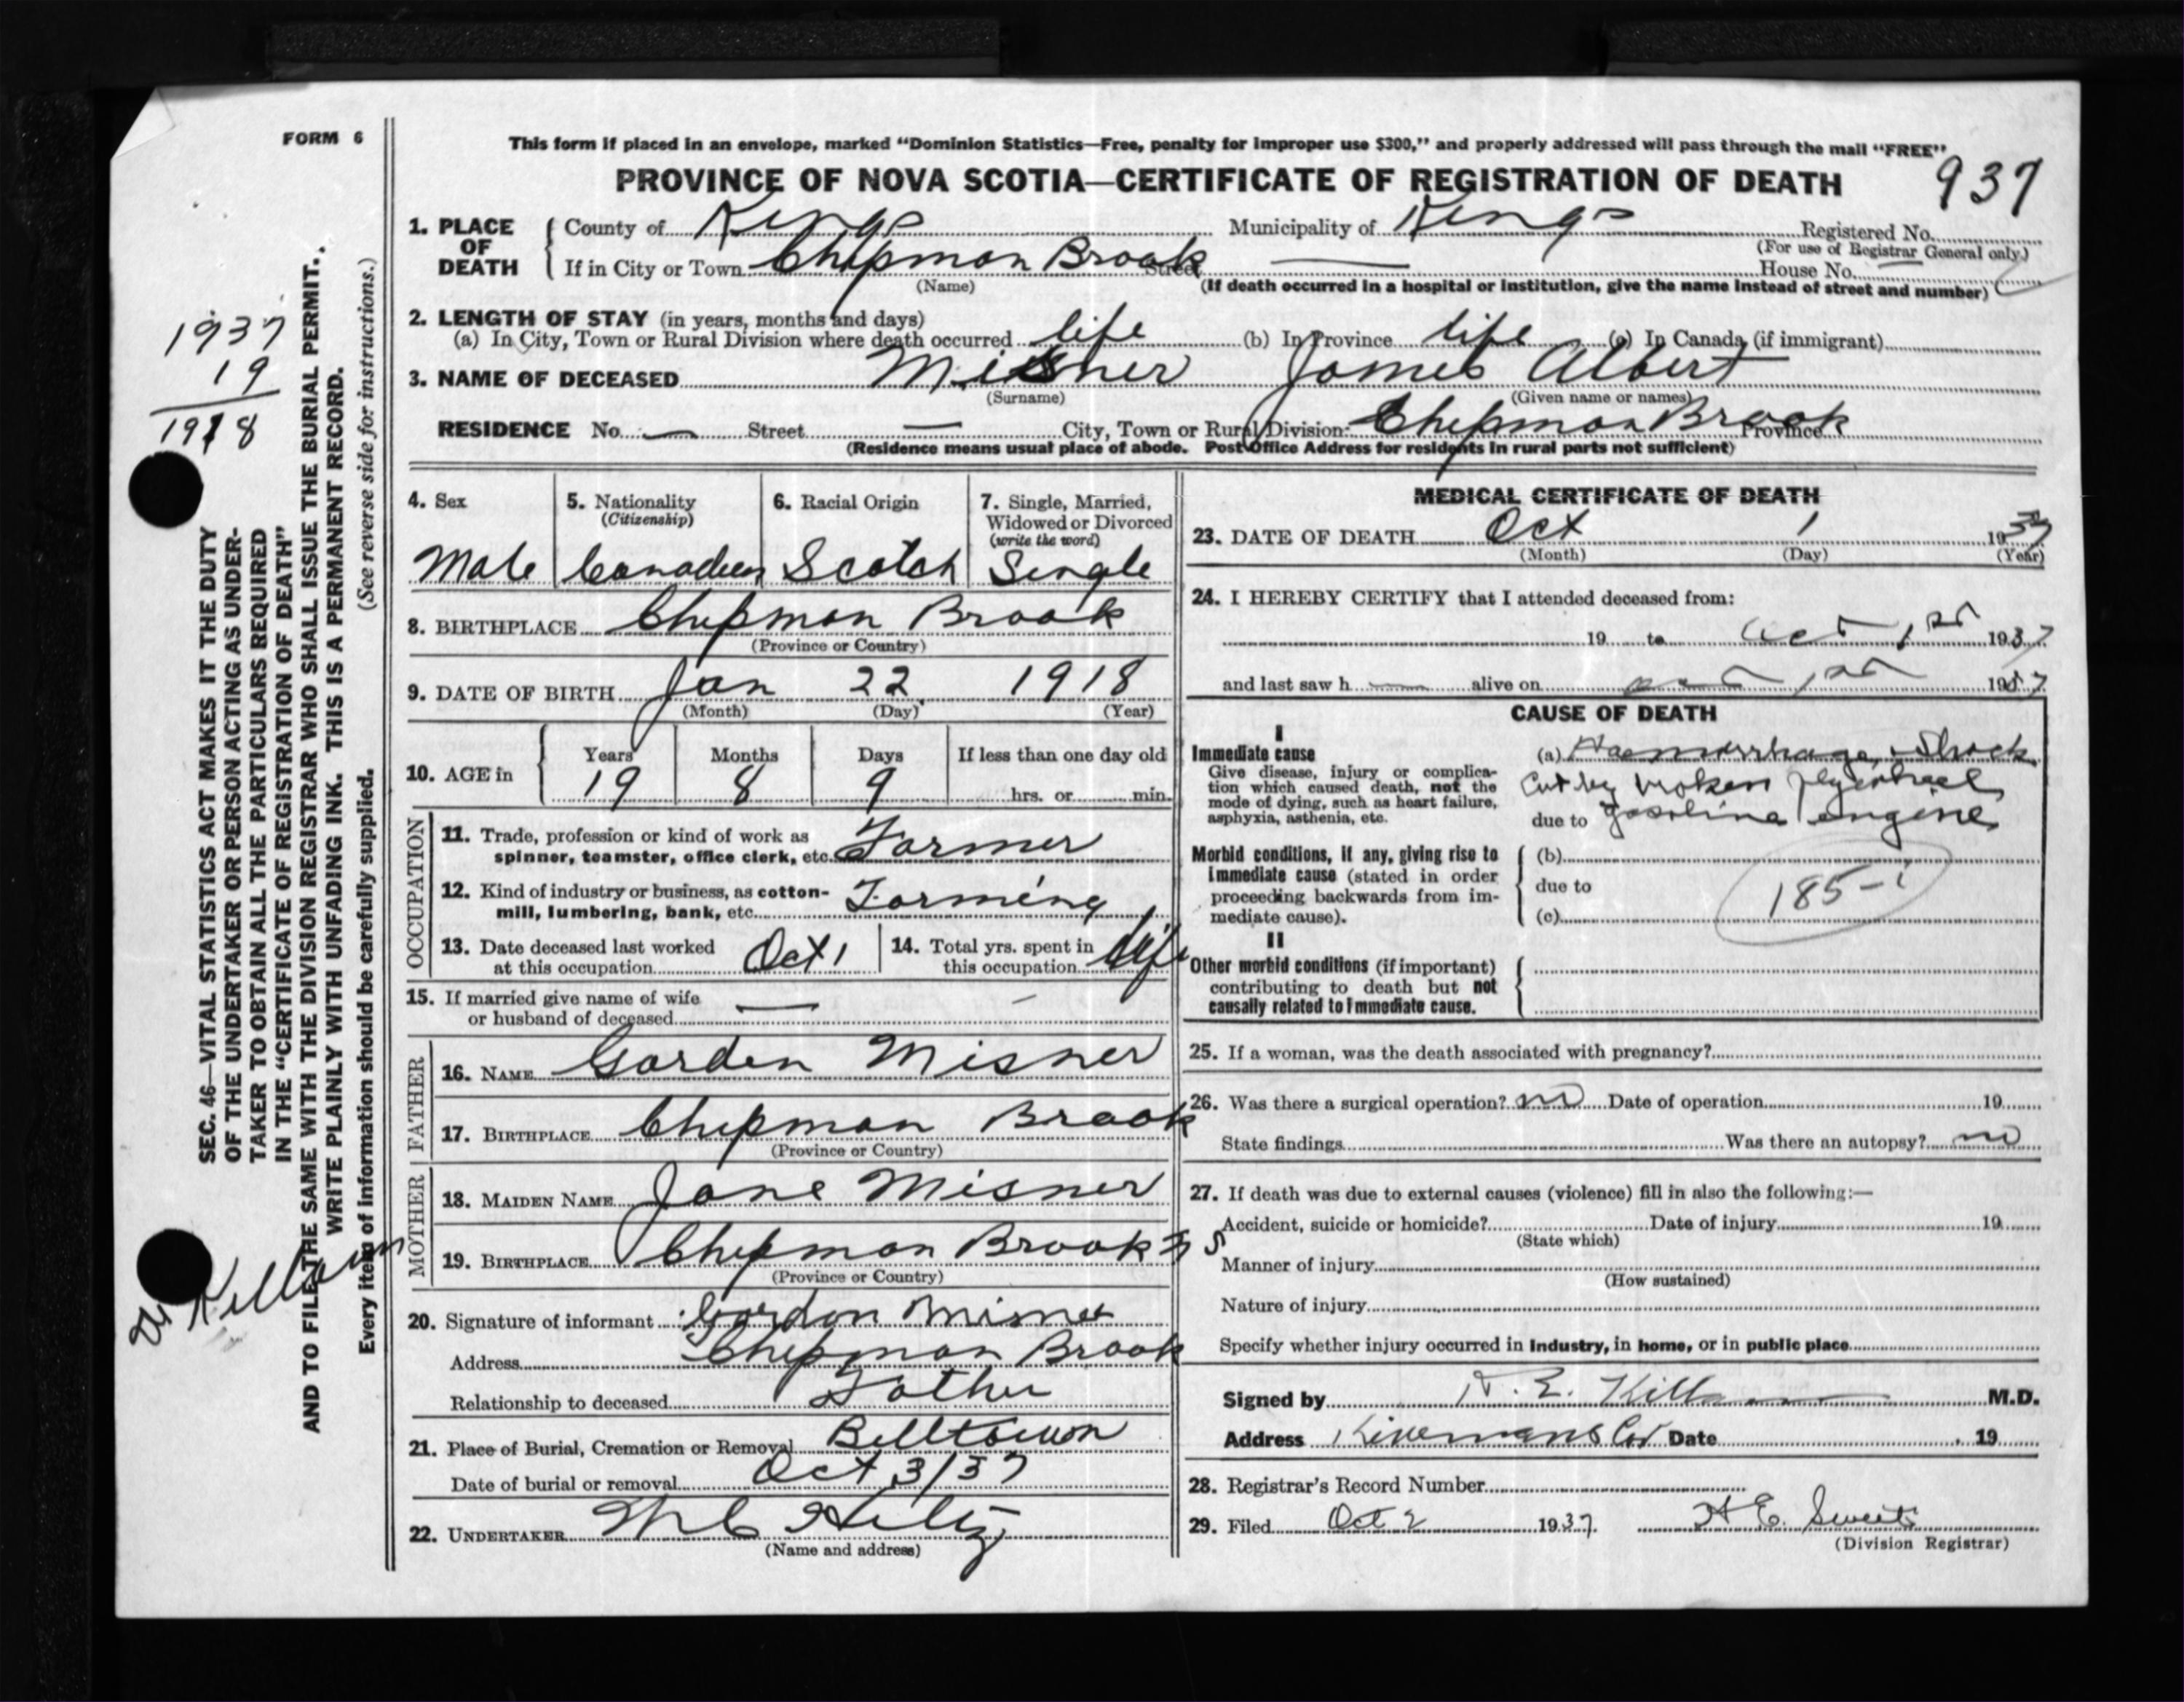 FORM 6
This form if placed in an envelope, marked "Dominion Statistics—Free, penalty for improper use $300," and properly addressed will pass through the mail "FREE"
PROVINCE OF NOVA SCOTIA—CERTIFICATE OF REGISTRATION OF DEATH
937
1. PLACE OF DEATH
County of Kings Municipality of Kings Registered No.
(For use of Registrar General only)
If in City or Town Chipman Brook Street — House No.
(Name) (If death occurred in a hospital or institution, give the name instead of street and number)
2. LENGTH OF STAY (in years, months and days)
(a) In City, Town or Rural Division where death occurred life (b) In Province life (c) In Canada (if immigrant)
3. NAME OF DECEASED Misner James Albert
(Surname) (Given name or names)
RESIDENCE No. — Street — City, Town or Rural Division Chipman Brook Province
(Residence means usual place of abode. Post Office Address for residents in rural parts not sufficient)
4. Sex Male
5. Nationality (Citizenship) Canadian
6. Racial Origin Scotch
7. Single, Married, Widowed or Divorced (write the word) Single
8. BIRTHPLACE Chipman Brook
(Province or Country)
9. DATE OF BIRTH Jan 22 1918
(Month) (Day) (Year)
10. AGE in
Years Months Days If less than one day old
19 8 9 hrs. or min.
OCCUPATION
11. Trade, profession or kind of work as
spinner, teamster, office clerk, etc. Farmer
12. Kind of industry or business, as cotton-
mill, lumbering, bank, etc. Farming
13. Date deceased last worked
at this occupation Oct 1
14. Total yrs. spent in
this occupation life
15. If married give name of wife
or husband of deceased —
FATHER
16. NAME Gorden Misner
17. BIRTHPLACE Chipman Brook
(Province or Country)
MOTHER
18. MAIDEN NAME Jane Misner
19. BIRTHPLACE Chipman Brook N S
(Province or Country)
20. Signature of informant Gordon Misner
Address Chipman Brook
Relationship to deceased Father
21. Place of Burial, Cremation or Removal Billtown
Date of burial or removal Oct 3/37
22. UNDERTAKER Hiltz
(Name and address)
MEDICAL CERTIFICATE OF DEATH
23. DATE OF DEATH Oct 1 1937
(Month) (Day) (Year)
24. I HEREBY CERTIFY that I attended deceased from:
19 to Oct 1st 1937
and last saw h — alive on Oct 1st 1937
CAUSE OF DEATH
I
Immediate cause
Give disease, injury or complica-
tion which caused death, not the
mode of dying, such as heart failure,
asphyxia, asthenia, etc.
(a) Haemorrhage, Shock
Cut by broken flywheel
due to gasoline engine
Morbid conditions, if any, giving rise to
immediate cause (stated in order
proceeding backwards from im-
mediate cause).
(b)
due to
(c)
185-
II
Other morbid conditions (if important)
contributing to death but not
causally related to immediate cause.
25. If a woman, was the death associated with pregnancy?
26. Was there a surgical operation? no Date of operation 19
State findings Was there an autopsy? no
27. If death was due to external causes (violence) fill in also the following:—
Accident, suicide or homicide? Date of injury 19
(State which)
Manner of injury
(How sustained)
Nature of injury
Specify whether injury occurred in industry, in home, or in public place
Signed by R. E. Killam M.D.
Address Date 19
28. Registrar's Record Number
29. Filed Oct 2 1937 H E. Sweet
(Division Registrar)
1937
19
1918
SEC. 46—VITAL STATISTICS ACT MAKES IT THE DUTY
OF THE UNDERTAKER OR PERSON ACTING AS UNDER-
TAKER TO OBTAIN ALL THE PARTICULARS REQUIRED
IN THE "CERTIFICATE OF REGISTRATION OF DEATH"
AND TO FILE THE SAME WITH THE DIVISION REGISTRAR WHO SHALL ISSUE THE BURIAL PERMIT.
WRITE PLAINLY WITH UNFADING INK. THIS IS A PERMANENT RECORD.
Every item of information should be carefully supplied. (See reverse side for instructions.)
Killam